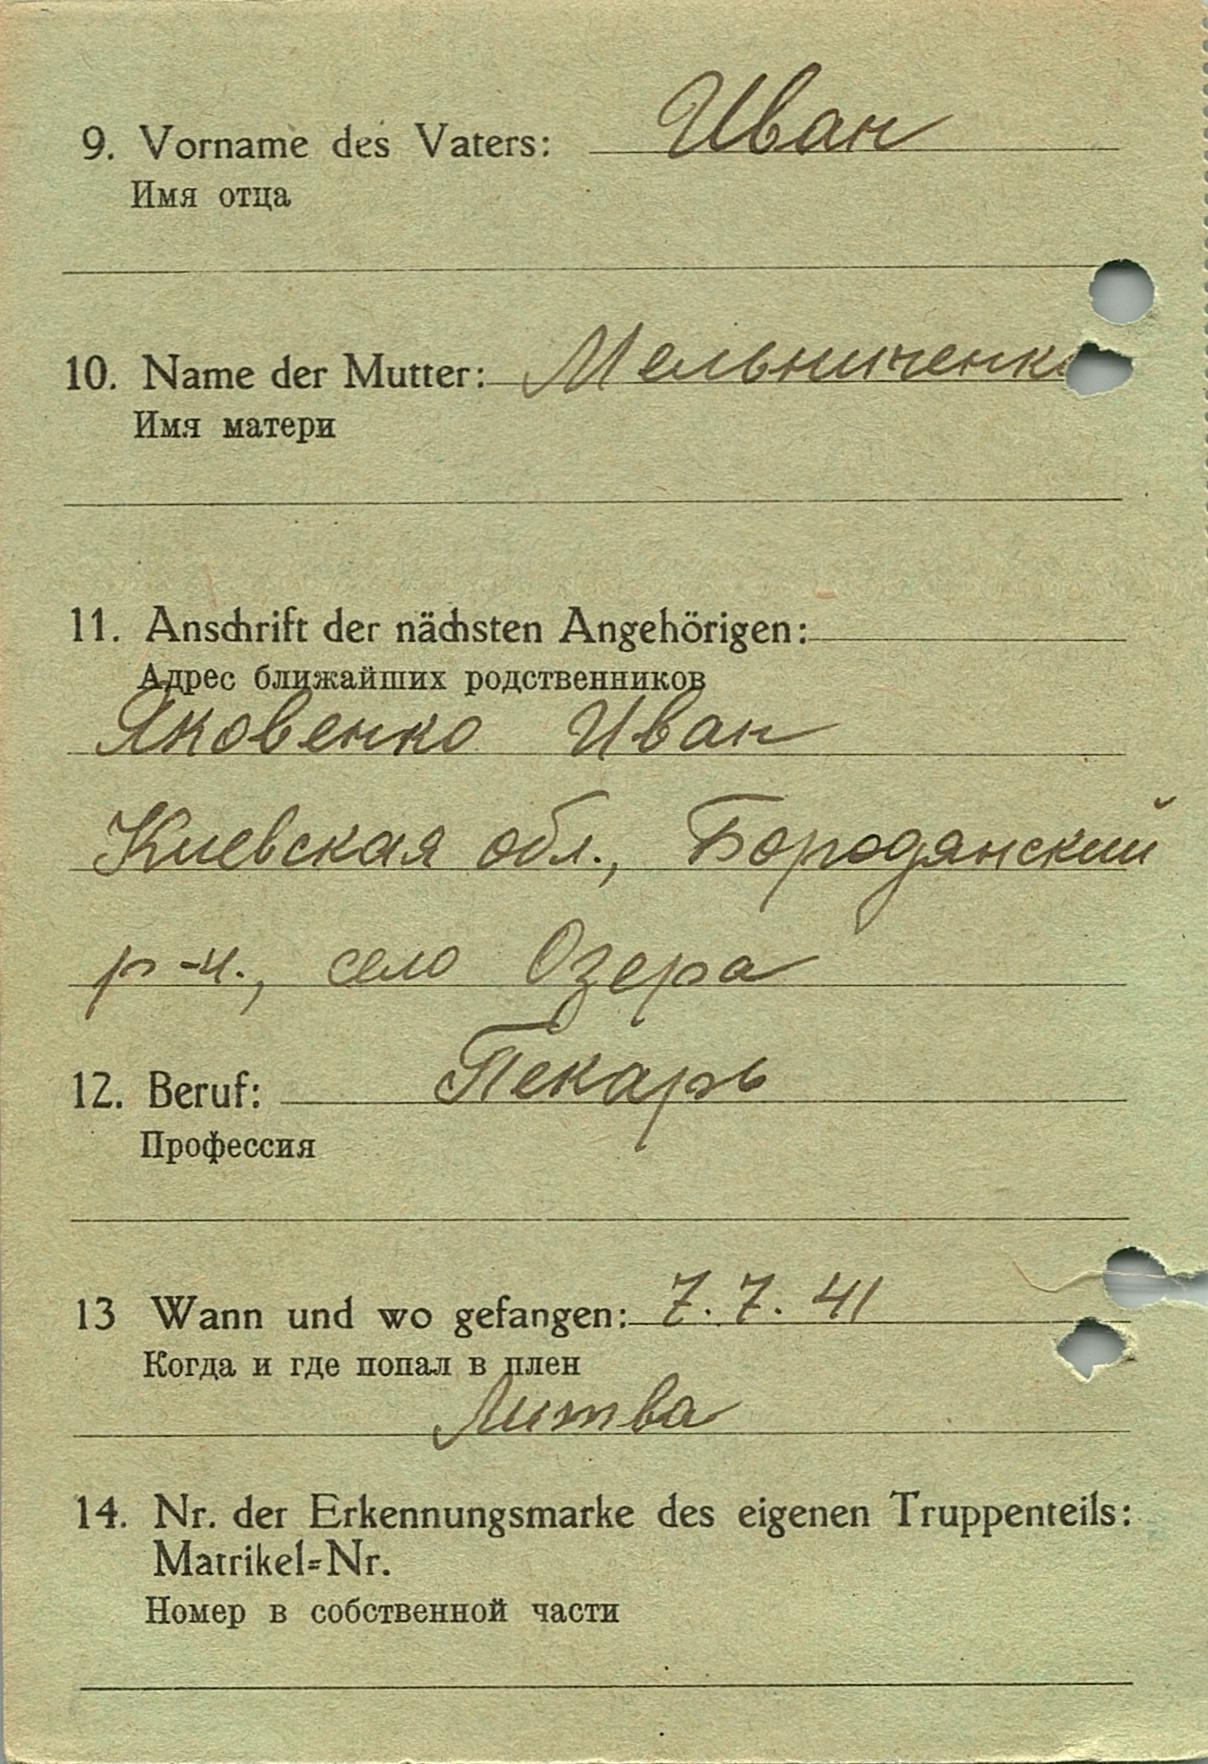 9. Vorname des Vaters: Иван
Имя отца
10. Name der Mutter: Мельниченко
Имя матери
11. Anschrift der nächsten Angehörigen:
Адрес ближайших родственников
Яковенко Иван
Киевская обл., Бородянский
р-н., село Озера
12. Beruf: Пекарь
Профессия
13 Wann und wo gefangen: 7. 7. 41
Когда и где попал в плен
Литва
14. Nr. der Erkennungsmarke des eigenen Truppenteils:
Matrikel=Nr.
Номер в собственной части